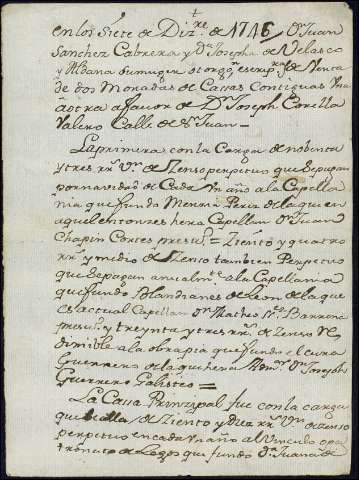 en los siete de Diz.re de 1746 Dn Juan
Sanchez Cabrera y Da Josepha de Velasco
y Aldana su muger otorgn escrip.ra de Venta
de dos Moradas de Cassas Contiguas Una
a otra a favor de Dn Joseph Corella
Valero Calle de Sn Juan =
La primera con la Carga de nobenta
y tres rrs Vn de Zenso perpetuo que se pagan
por navidad de Cada Un año a la Capella
nia que fundo Mencia Perez de la que en
aquel entonzes hera Capellan Dn Juan
Chapin Cortes presvo = Ziento y quatro
rrs y medio de Zenso tambien Perpetuo
que se pagan anualmte a la Capellania
que fundo Blandianes de Leon de la que
es actual Capellan Dn Matheo
presvo y treynta y tres rrs de Zenso Re
dimible a la obra pia que fundo el cura
Guerrero de la que hera Admor Dn Joseph
Guerrero Galisteo =
La Cassa Prinzipal fue con la carga
que de Ziento y Diez rrs Vn de zenso
perpetuo en cada Un año al Vinculo o pa
tronato de Legos que fundo Da Juana de